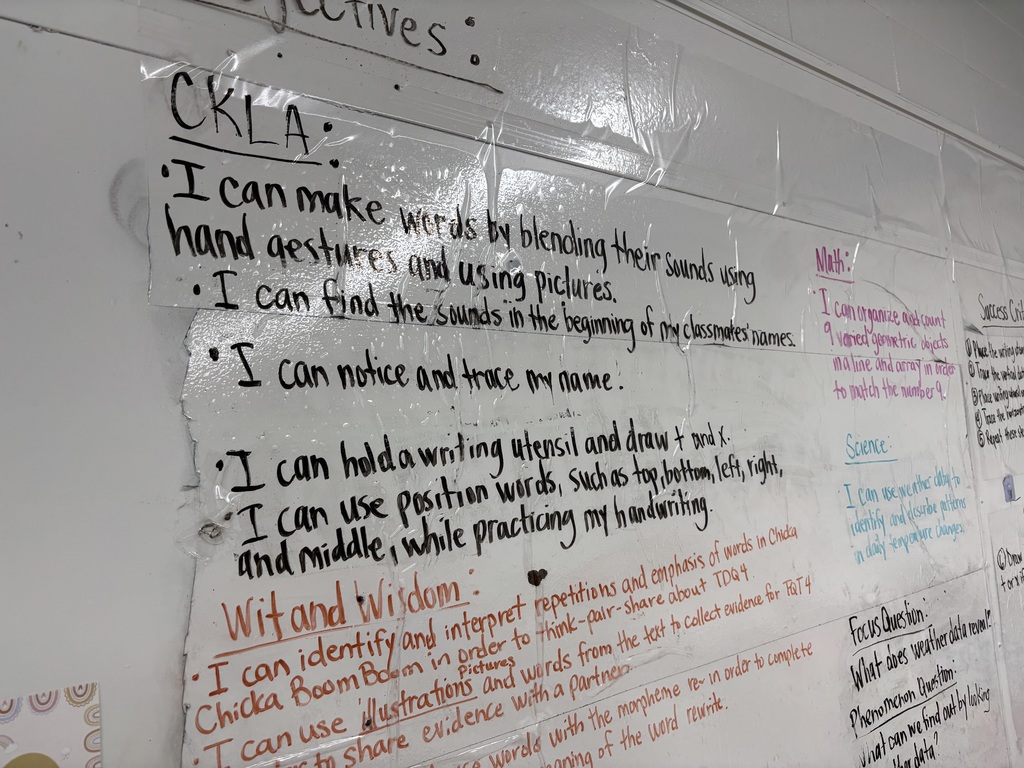 jectives:
CKLA:
• I can make words by blending their sounds using
hand gestures and using pictures.
• I can find the sounds in the beginning of my classmates' names.
• I can notice and trace my name.
• I can hold a writing utensil and draw + and x.
• I can use position words, such as top, bottom, left, right,
and middle, while practicing my handwriting.
Wit and Wisdom:
• I can identify and interpret repetitions and emphasis of words in Chicka
Chicka Boom Boom in order to think-pair-share about TDQ4.
pictures
• I can use illustrations and words from the text to collect evidence for FQT4
to share evidence with a partner.
words with the morpheme re- in order to complete
meaning of the word rewrite.
Math:
• I can organize and count
9 varied geometric objects
in a line and array in order
to match the number 9.
Science:
I can use weather data to
identify and describe patterns
in daily temperature changes.
Focus Question:
What does weather data reveal?
Phenomenon Question:
What can we find out by looking
data?
Success
① Place the writing
② Trace the vertical
③ Place writing
④ Trace the horizontal
⑤ Repeat these
① Draw